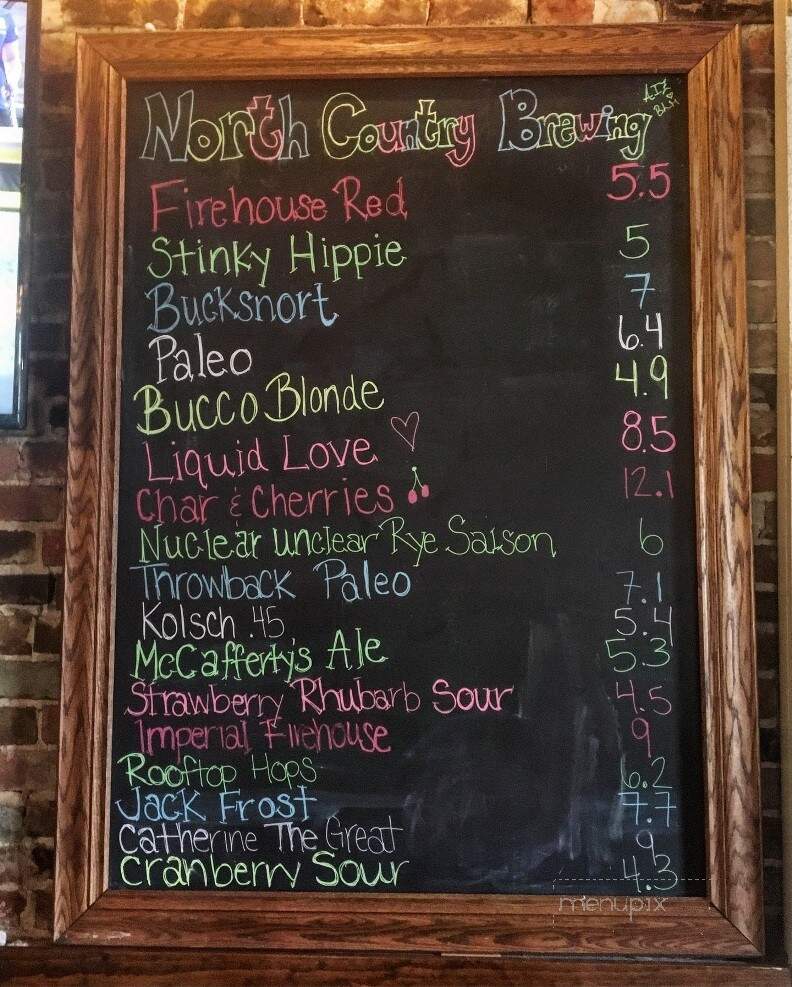 North Country Brewing
Firehouse Red 5.5
Stinky Hippie 5
Bucksnort 7
Paleo 6.4
Bucco Blonde 4.9
Liquid Love 8.5
Char & Cherries 12.1
Nuclear Unclear Rye Saison 6
Throwback Paleo 7.1
Kolsch .45 5.4
McCafferty's Ale 5.3
Strawberry Rhubarb Sour 4.5
Imperial Firehouse 9
Rooftop Hops 6.2
Jack Frost 7.7
Catherine The Great 9
Cranberry Sour 4.3
menupix